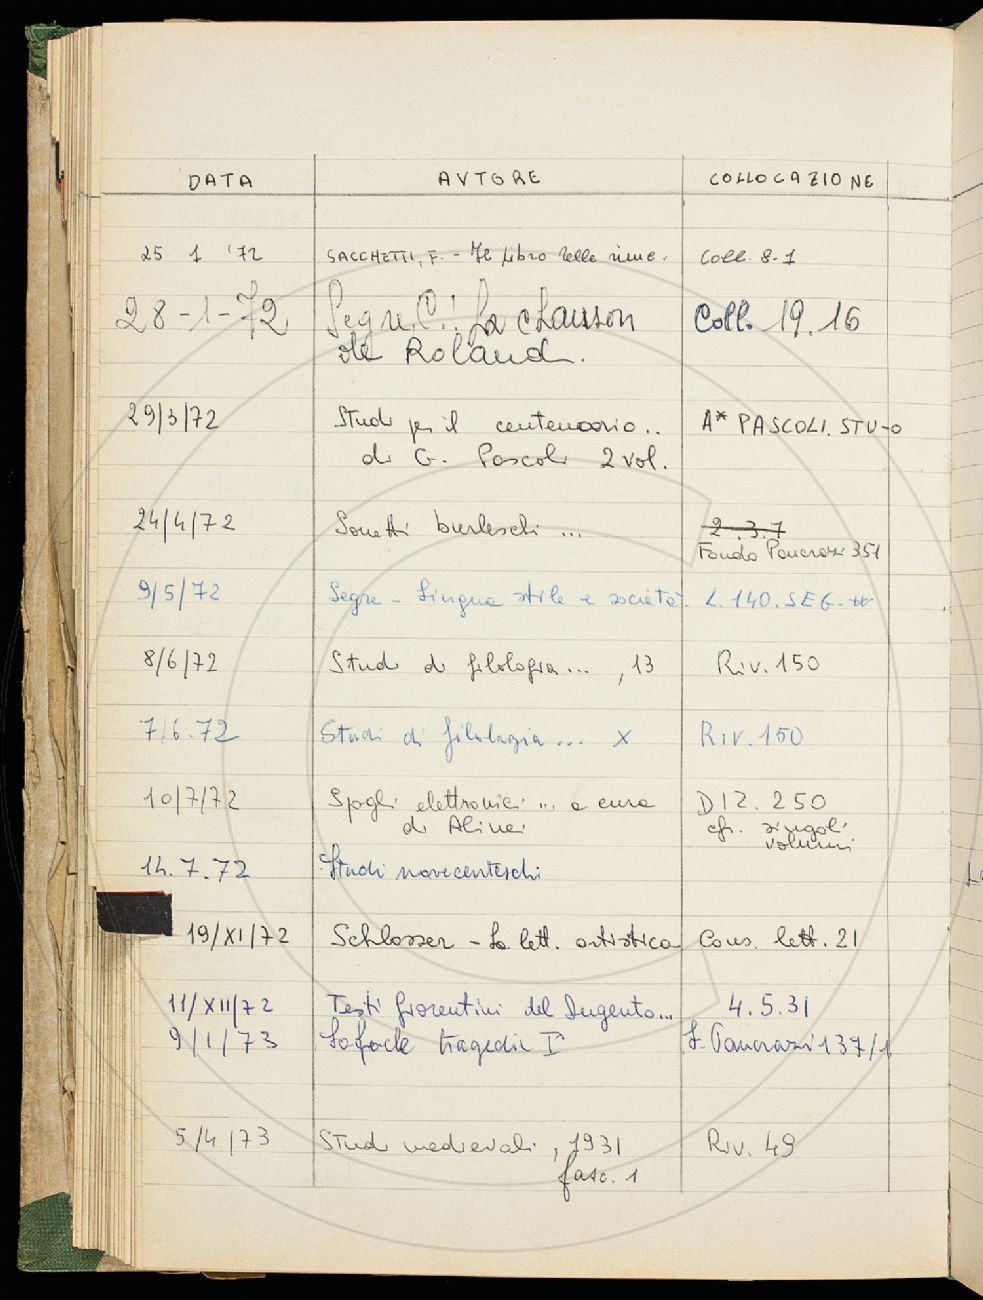 DATA AVTORE COLLOCAZIONE
25 1 '72 SACCHETTI, F. - Il libro delle rime. Coll. 8-1
28-1-72 Segre, C.: La chanson Coll. 19.16
de Roland.
29/3/72 Studi per il centenario.. A* PASCOLI. STU-O
di G. Pascoli 2 vol.
24/4/72 Sonetti burleschi ... 2.3.7
Fondo Pancrazi 351
9/5/72 Segre - Lingua stile e società. L.140.SEG.
8/6/72 Studi di filologia... , 13 Riv. 150
7/6.72 Studi di filologia... X Riv. 150
10/7/72 Spogli elettronici ... a cura DIZ. 250
di Alinei cfr. singoli
volumi
14.7.72 Studi novecenteschi
19/XI/72 Schlosser - La lett. artistica Cons. lett. 21
11/XII/72 Testi fiorentini del Dugento... 4.5.31
9/1/73 Sofocle tragedie I° F. Pancrazi 137/1
5/4/73 Studi medievali, 1931 Riv. 49
fasc. 1